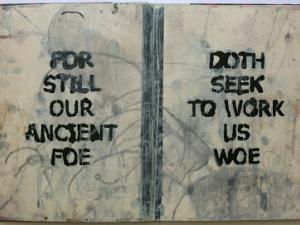 FOR
STILL
OUR
ANCIENT
FOE
DOTH
SEEK
TO WORK
US
WOE